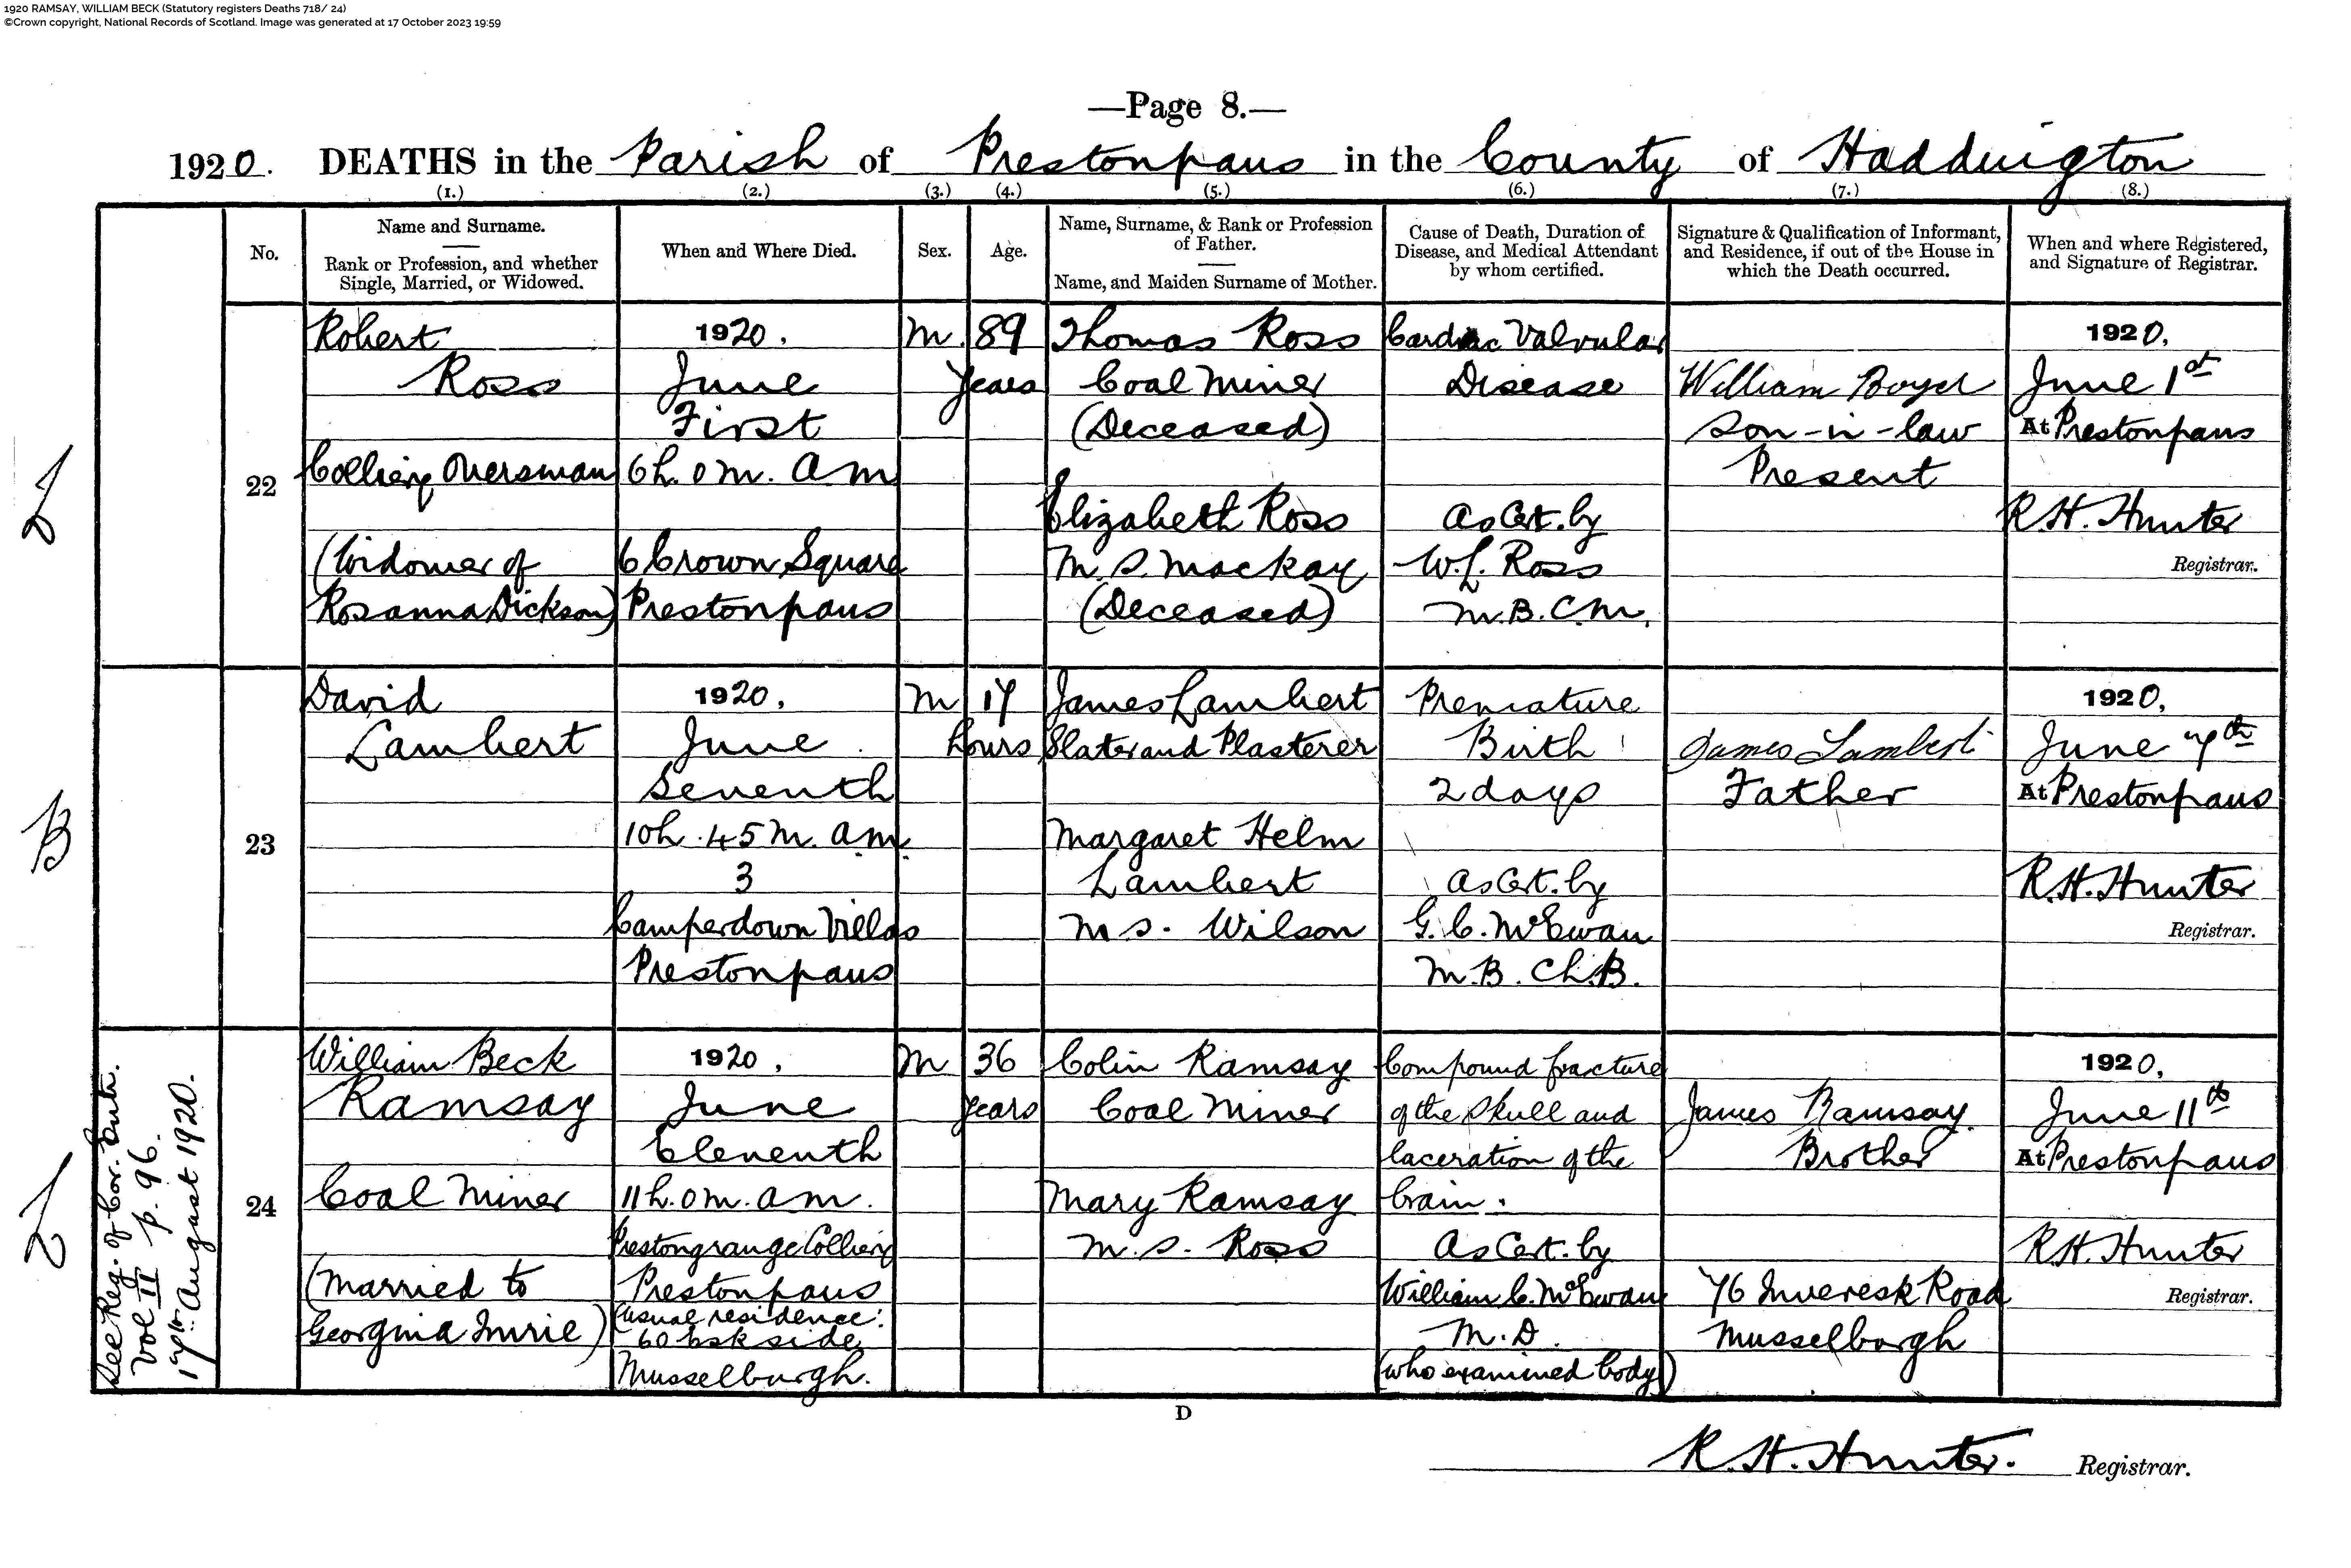 1920 RAMSAY, WILLIAM BECK (Statutory registers Deaths 718/ 24)
©Crown copyright, National Records of Scotland. Image was generated at 17 October 2023 19:59
—Page 8.—
1920. DEATHS in the Parish of Prestonpans in the County of Haddington
(1.) (2.) (3.) (4.) (5.) (6.) (7.) (8.)
No.
Name and Surname.
Rank or Profession, and whether
Single, Married, or Widowed.
When and Where Died.
Sex.
Age.
Name, Surname, & Rank or Profession
of Father.
Name, and Maiden Surname of Mother.
Cause of Death, Duration of
Disease, and Medical Attendant
by whom certified.
Signature & Qualification of Informant,
and Residence, if out of the House in
which the Death occurred.
When and where Registered,
and Signature of Registrar.
22
Robert
Ross
Colliery Oversman
(Widower of
Rosanna Dickson)
1920.
June
First
6h. 0m. a.m
6 Crown Square
Prestonpans
M.
89
years
Thomas Ross
Coal Miner
(Deceased)
Elizabeth Ross
M.S. Mackay
(Deceased)
Cardiac Valvular
Disease
As Cert. by
W.L. Ross
M.B. C.M.
William Boyer
Son-in-law
Present
1920,
June 1st
At Prestonpans
R.H. Hunter
Registrar.
B
23
David
Lambert
1920.
June
Seventh
10h. 45m. a.m.
3
Camperdown Villas
Prestonpans
M
17
hours
James Lambert
Slater and Plasterer
Margaret Helm
Lambert
M.S. Wilson
Premature
Birth
2 days
As Cert. by
G.C. McEwan
M.B. Ch.B.
James Lambert
Father
1920,
June 7th
At Prestonpans
R.H. Hunter
Registrar.
See Reg. of Cor. Ent.
Vol II p. 96.
17th August 1920.
24
William Beck
Ramsay
Coal Miner
(Married to
Georgina Imrie)
1920.
June
Eleventh
11h. 0m. a.m.
Prestongrange Colliery
Prestonpans
(usual residence:
60 Eskside
Musselburgh.
M
36
years
Colin Ramsay
Coal Miner
Mary Ramsay
M.S. Ross
Compound fracture
of the skull and
laceration of the
brain.
As Cert. by
William C. McEwan
M.D.
(who examined body)
James Ramsay.
Brother
76 Inveresk Road
Musselburgh
1920,
June 11th
At Prestonpans
R.H. Hunter
Registrar.
D
R.H. Hunter. Registrar.